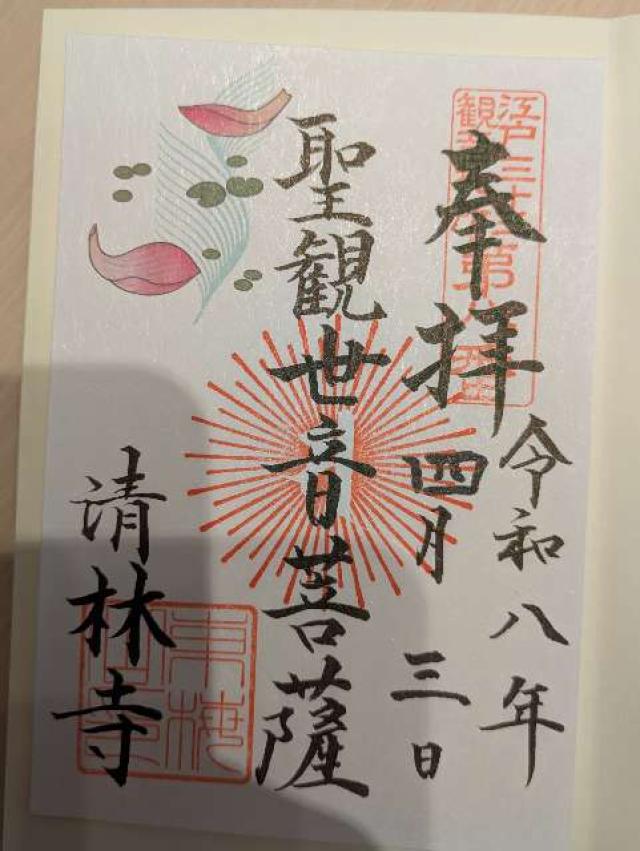 奉拝
令和八年
四月三日
聖観世音菩薩
清林寺